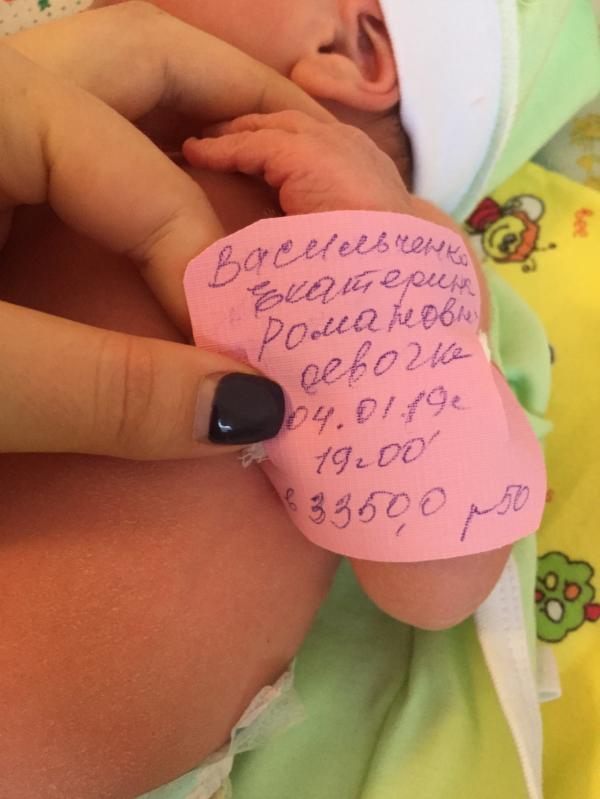 Васильченко
Екатерина
Романовна
девочка
04.01.19г
19-00
в 3350,0 р-50